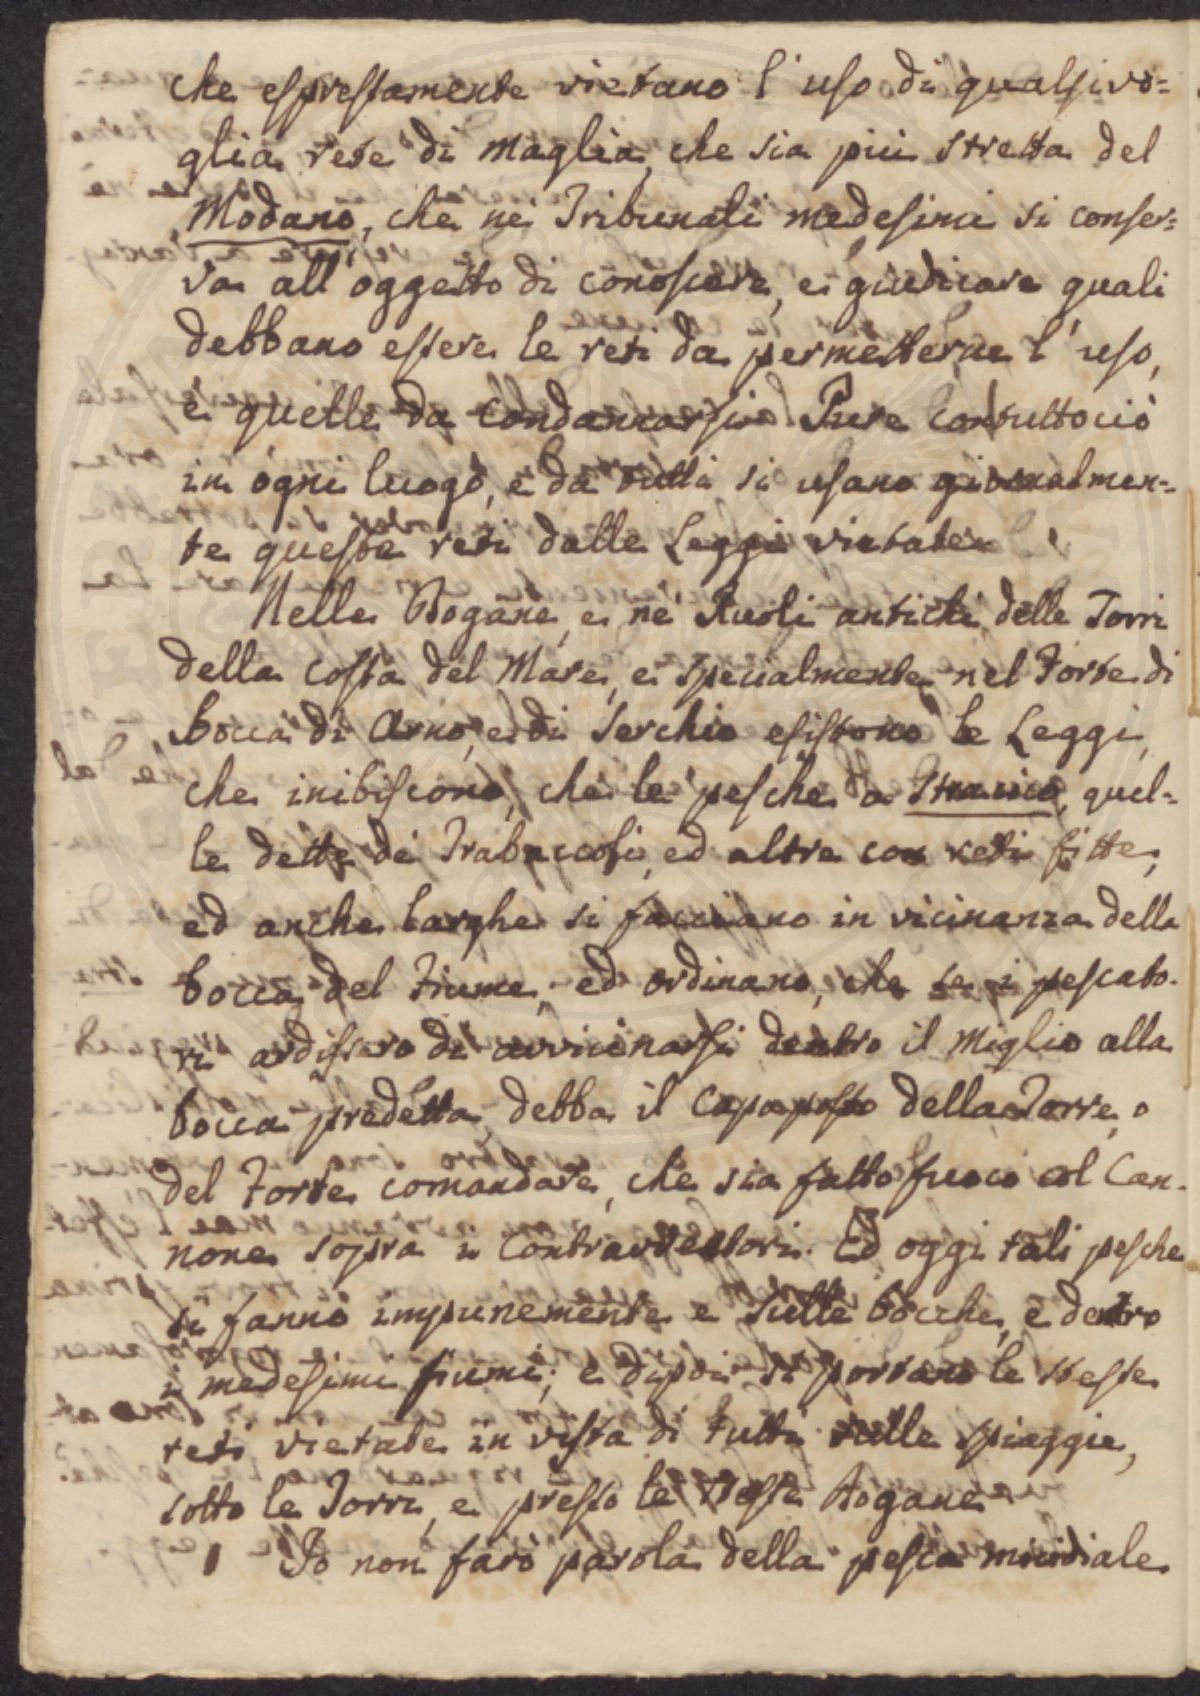 che espressamente vietano l'uso di qualsivo=
glia rete di Maglia, che sia più stretta del
Modano, che ne' Tribunali medesimi si conser=
va all'oggetto di conoscere, e giudicare quali
debbano essere le reti da permetterne l'uso,
e quelle da condannarsi. Pure contuttociò
in ogni luogo, e da tutti si usano giornalmen=
te queste reti dalle Leggi vietate.
Nelle Dogane, e ne' Ruoli antichi delle Torri
della costa del Mare, e specialmente nel Forte di
bocca di Arno, e di Serchio esistono le Leggi,
che inibiscono, che le pesche a Strascico, quel=
le dette di Trabaccoli, ed altre con reti fitte,
ed anche larghe si facciano in vicinanza della
bocca del Fiume, ed ordinano, che se i pescato-
ri ardissero di avvicinarsi dentro il Miglio alla
bocca predetta, debba il Capoposto della Torre, o
del Forte comandare, che sia fatto fuoco col Can-
none sopra i Contravventori. Ed oggi tali pesche
si fanno impunemente e sulle bocche, e dentro
i medesimi fiumi; e dipoi si portano le stesse
reti vietate in vista di tutti sulle spiaggie,
sotto le Torri, e presso le stesse Dogane
Io non farò parola della pesca micidiale